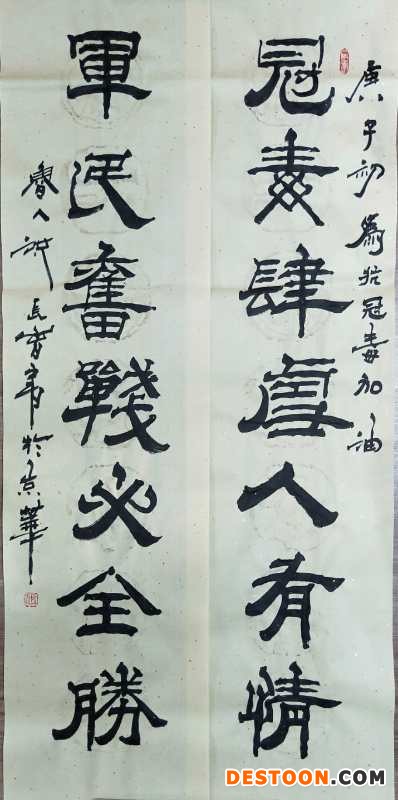 庚子初為抗冠毒加油
冠毒肆虐人有情
軍民奮戰必全勝
魯人 長 書於京華
DESTOON.COM